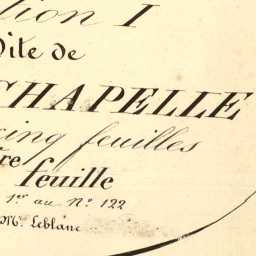 tion I
Dite de
CHAPELLE
cinq feuilles
re feuille
1er au No 122
Mr Leblanc